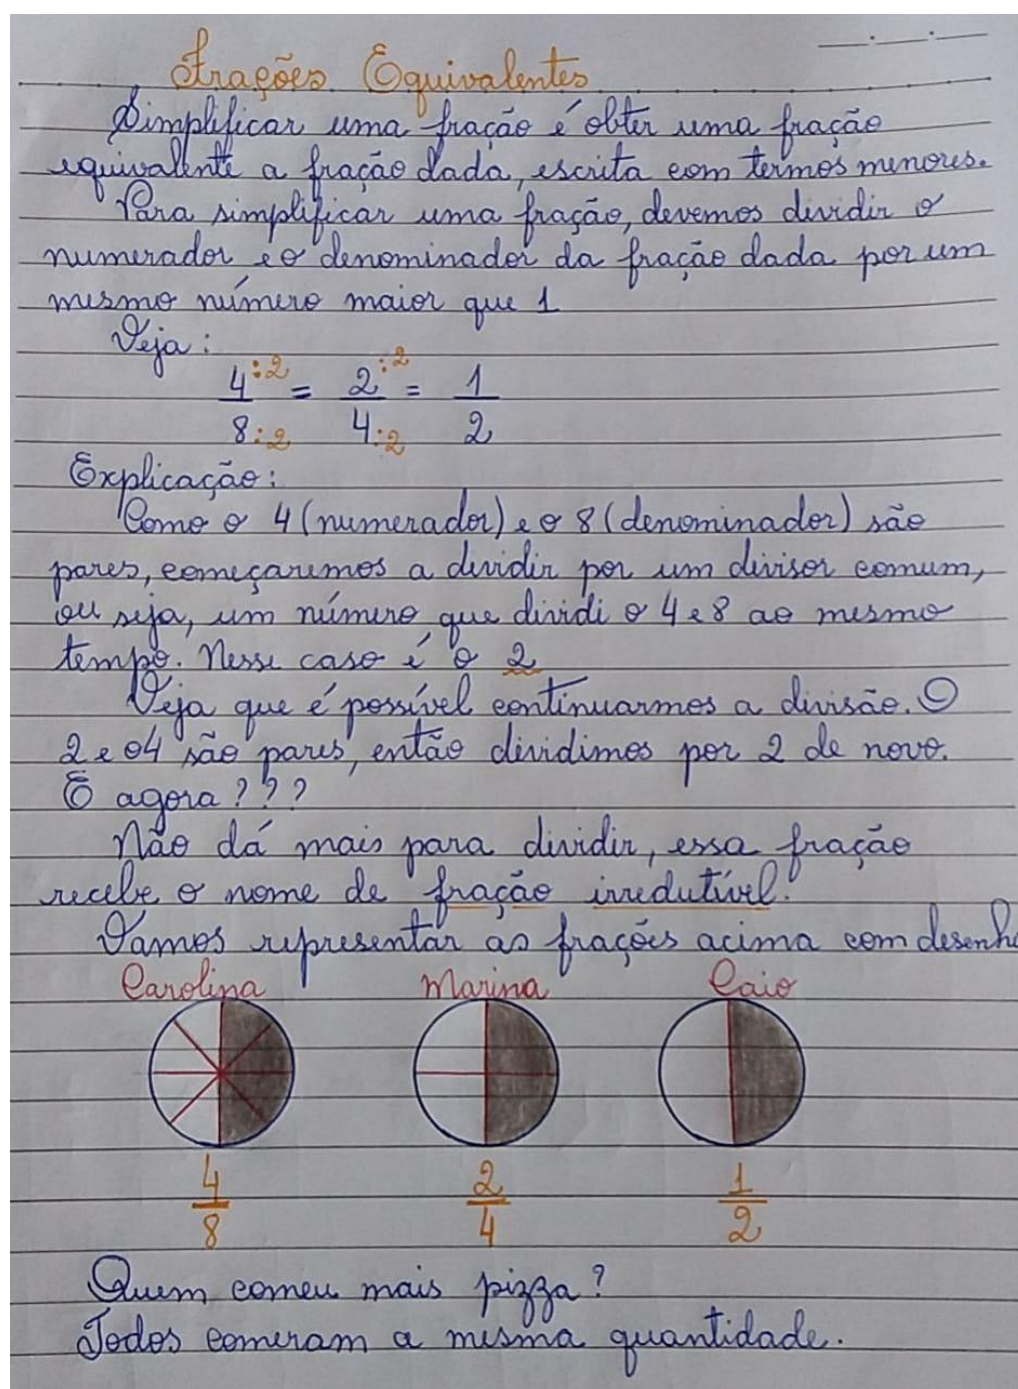 Frações Equivalentes
Simplificar uma fração é obter uma fração
equivalente a fração dada, escrita com termos menores.
Para simplificar uma fração, devemos dividir o
numerador e o denominador da fração dada por um
mesmo número maior que 1
Veja:
4:2 = 2:2 = 1
8:2 4:2 2
Explicação:
Como o 4 (numerador) e o 8 (denominador) são
pares, começaremos a dividir por um divisor comum,
ou seja, um número que dividi o 4 e 8 ao mesmo
tempo. Nesse caso é o 2
Veja que é possível continuarmos a divisão. O
2 e o 4 são pares, então dividimos por 2 de novo.
E agora???
Não dá mais para dividir, essa fração
recebe o nome de fração irredutível.
Vamos representar as frações acima com desenho
Carolina Marina Caio
4 2 1
8 4 2
Quem comeu mais pizza?
Todos comeram a mesma quantidade.